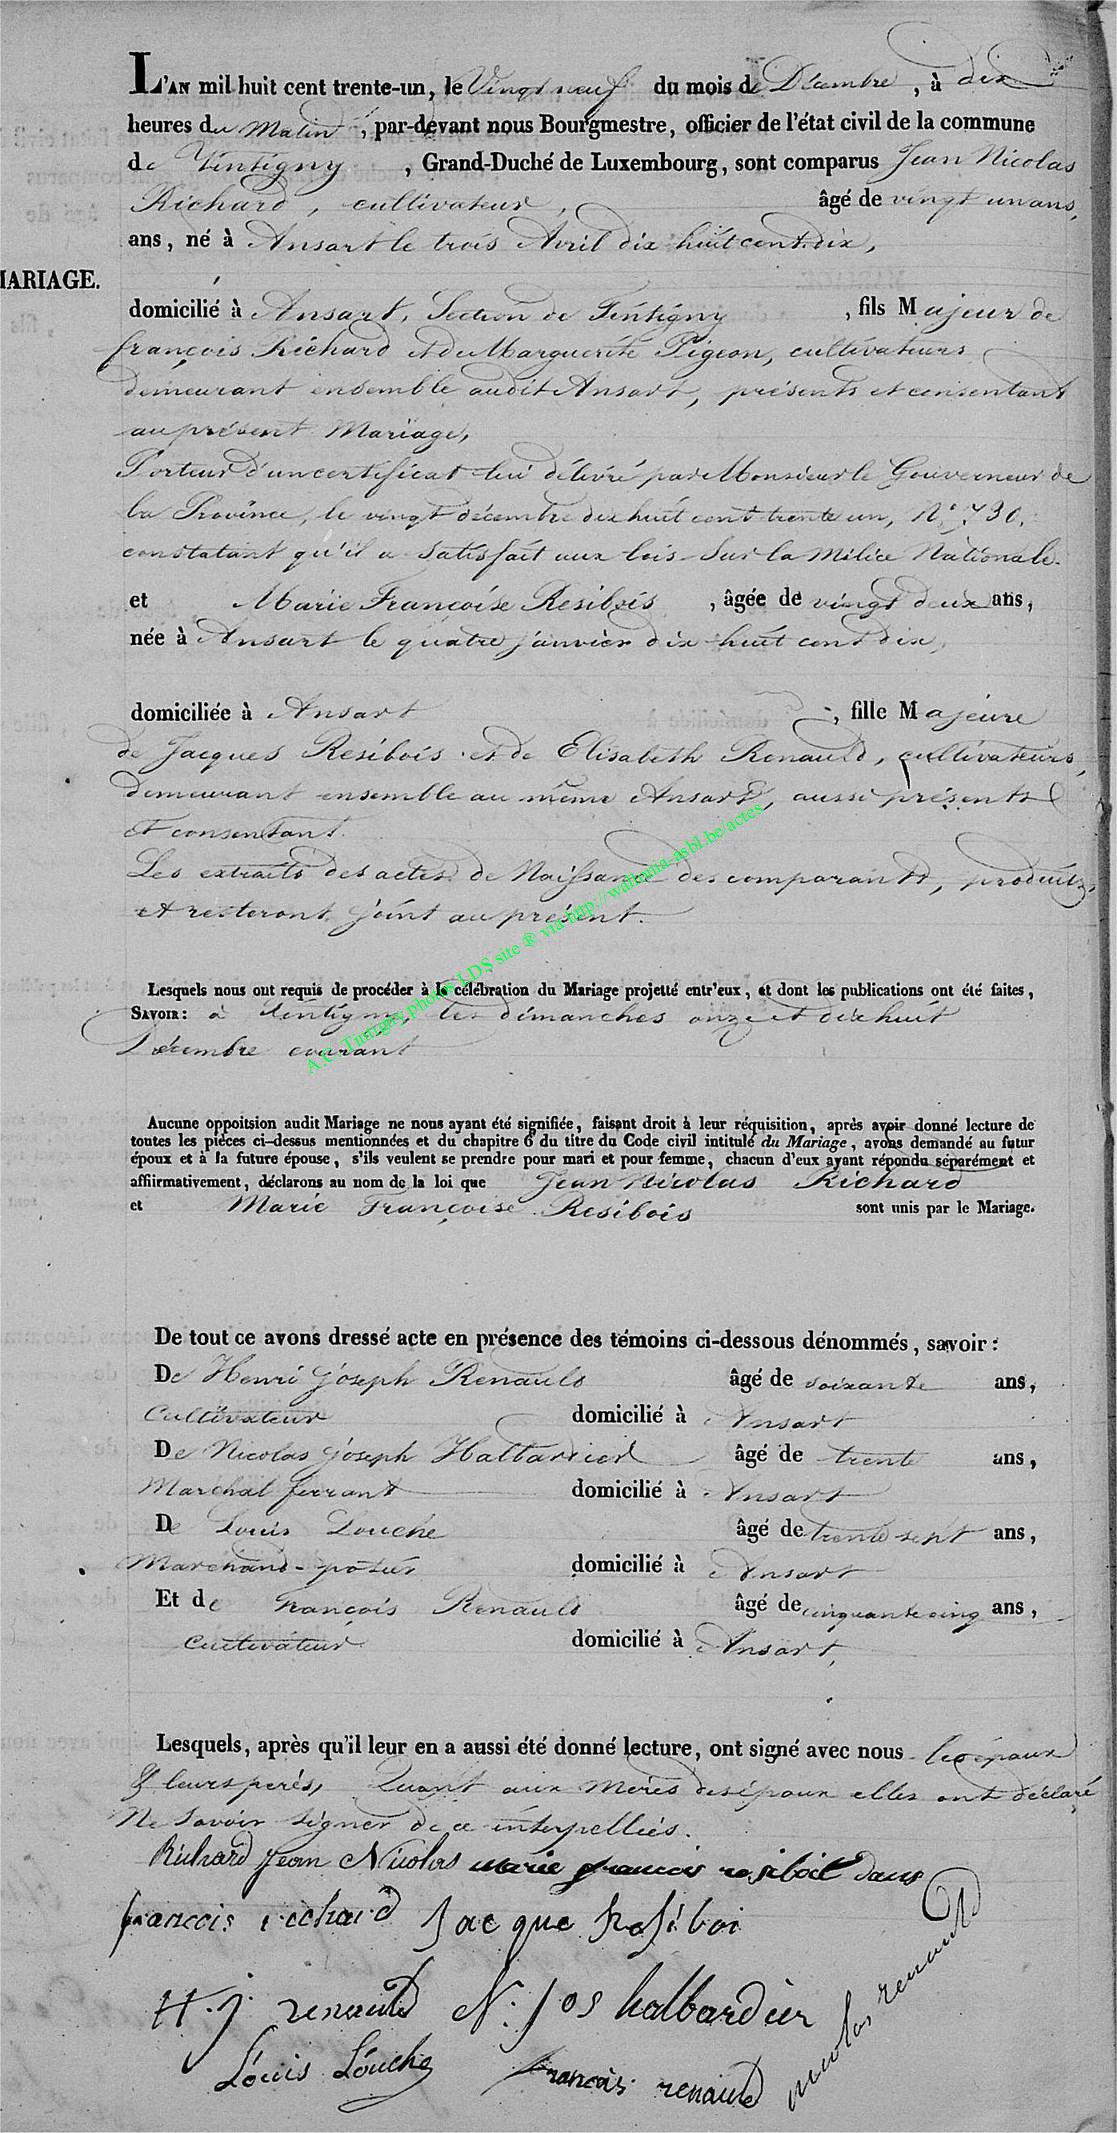 L'AN mil huit cent trente-un, le Vingt neuf du mois de Décembre, à dix
heures du Matin, par-devant nous Bourgmestre, officier de l'état civil de la commune
de Tintigny, Grand-Duché de Luxembourg, sont comparus Jean Nicolas
Richard, cultivateur, âgé de vingt un ans,
ans, né à Ansart le trois Avril dix huit cent dix,
MARIAGE.
domicilié à Ansart, Section de Tintigny, fils Majeur de
françois Richard et de Marguerite Pigeon, cultivateurs
demeurant ensemble audit Ansart, présents et consentant
au présent Mariage,
Porteur d'un certificat lui délivré par Monsieur le Gouverneur de
la Province, le vingt décembre dix huit cent trente un, N° 730,
constatant qu'il a satisfait aux lois sur la Milice Nationale.
et Marie Françoise Resibois, âgée de vingt deux ans,
née à Ansart le quatre janvier dix huit cent dix,
domiciliée à Ansart, fille Majeure
de Jacques Resibois et de Elisabeth Renauld, cultivateurs,
demeurant ensemble au même Ansart, aussi présents
et consentant.
Les extraits des actes de Naissance des comparants, produits,
et resteront joint au présent.
Lesquels nous ont requis de procéder à la célébration du Mariage projetté entr'eux, et dont les publications ont été faites,
SAVOIR: à Tintigny, les dimanches onze et dix huit
Décembre courant
A.C. Tintigny photos LDS site ® via http://wallonia-asbl.be/actes
Aucune oppoitsion audit Mariage ne nous ayant été signifiée, faisant droit à leur réquisition, après avoir donné lecture de
toutes les pièces ci-dessus mentionnées et du chapitre 6 du titre du Code civil intitulé du Mariage, avons demandé au futur
époux et à la future épouse, s'ils veulent se prendre pour mari et pour femme, chacun d'eux ayant répondu séparément et
affiirmativement, déclarons au nom de la loi que Jean Nicolas Richard
et Marie Françoise Resibois sont unis par le Mariage.
De tout ce avons dressé acte en présence des témoins ci-dessous dénommés, savoir:
De Henri Joseph Renauld âgé de soixante ans,
Cultivateur domicilié à Ansart
De Nicolas Joseph âgé de trente ans,
Marchal ferrant domicilié à Ansart
De Louis Louche âgé de trente sept ans,
Marchand - domicilié à Ansart
Et de François Renauld âgé de cinquante cinq ans,
cultivateur domicilié à Ansart,
Lesquels, après qu'il leur en a aussi été donné lecture, ont signé avec nous les époux
& leurs peres, Quant aux Meres des époux elles ont déclaré
Ne savoir signer de ce interpellées.
Richard Jean Nicolas marie francois resiboit
francois richard Jacque Resiboi
H. j. renauld N. Jos halbardier
Louis Louche francois renauld nicolas renauld